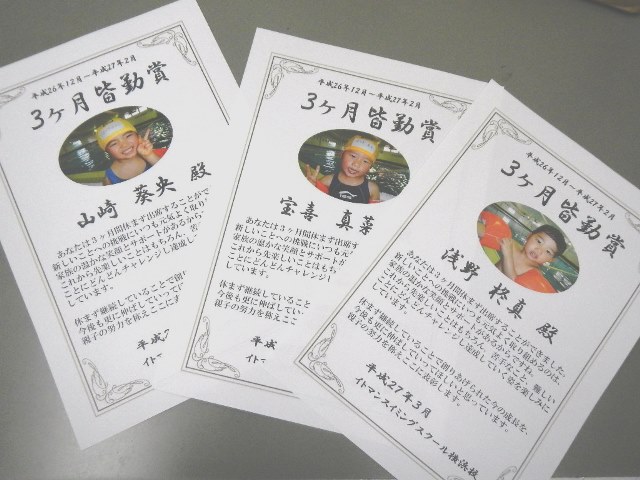 平成26年12月～平成27年2月
3ヶ月皆勤賞
山崎 葵央 殿
あなたは3ヶ月間休まず出席することがで
新しいことへの挑戦にいつも元気よく取り
家族の温かな笑顔とサポートがあるから
これから先楽しいことはもちろん、苦
ことにどんどんチャレンジし達成し
しています。
休まず継続していることで創り
今後も更に伸ばしていって
親子の努力を称えここに
平成
イト
平成26年12月～平成27年2月
3ヶ月皆勤賞
宝喜 真菜
あなたは3ヶ月間休まず出席
新しいことへの挑戦にいつも元
家族の温かな笑顔とサポートが
これから先楽しいことはもち
ことにどんどんチャレンジし
しています。
休まず継続していること
今後も更に伸ばしてい
親子の努力を称えここ
平成
イト
平成26年12月～平成27年2月
3ヶ月皆勤賞
浅野 柊真 殿
あなたは3ヶ月間休まず出席することができました。
新しいことへの挑戦にいつも元気よく取り組めるのは、
家族の温かな笑顔とサポートがあるからですね。
これから先楽しいことはもちろん、苦手なこと、難しい
ことにどんどんチャレンジし達成していく姿を楽しみに
しています。
休まず継続していることで創りあげられた今の成長を、
今後も更に伸ばしていってほしいと思っています。
親子の努力を称えここに表彰します。
平成27年3月
イトマンスイミングスクール横浜校